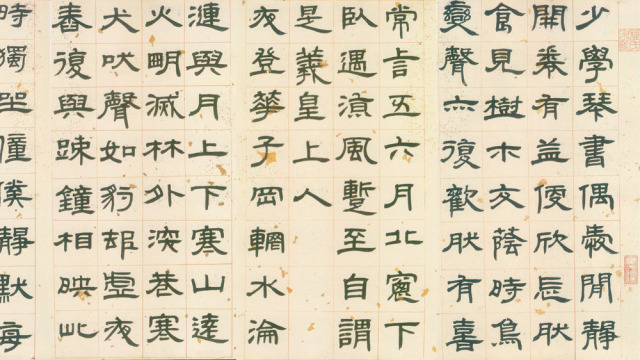 少學琴書偶愛閒靜
開卷有益便欣忘肰
食見樹木交蔭時鳥
變聲亦復歡肰有喜
常言五六月北窗下
臥遇涼風暫至自謂
是羲皇上人
夜登華子岡輞水淪
漣與月上下寒山遠
火明滅林外深巷寒
犬吠聲如豹邨虛夜
舂復與疎鐘相映此
時獨坐僮僕靜默每